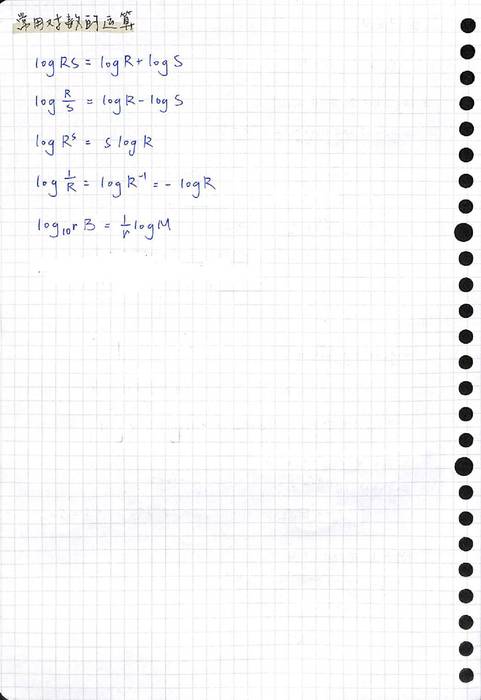 常用对数的运算
log RS = log R + log S
log R/S = log R - log S
log Rˢ = s log R
log 1/R = log R⁻¹ = - log R
log₁₀r B = 1/r log M